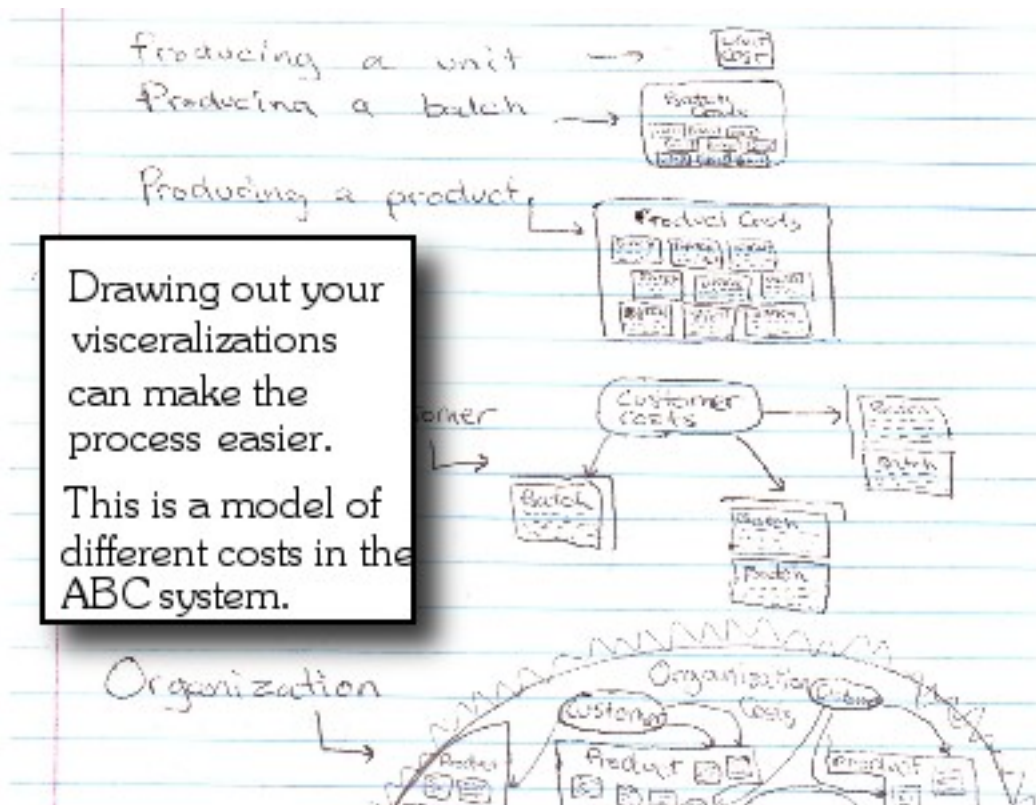 Producing a unit →
unit
cost
Producing a batch →
Batch
Costs
Producing a product
Product Costs
Drawing out your
visceralizations
can make the
process easier.
This is a model of
different costs in the
ABC system.
omer
Customer
costs
Batch
Batch
Batch
Batch
Batch
Organization
Organization
Costs
Customer
Product
Product
Product